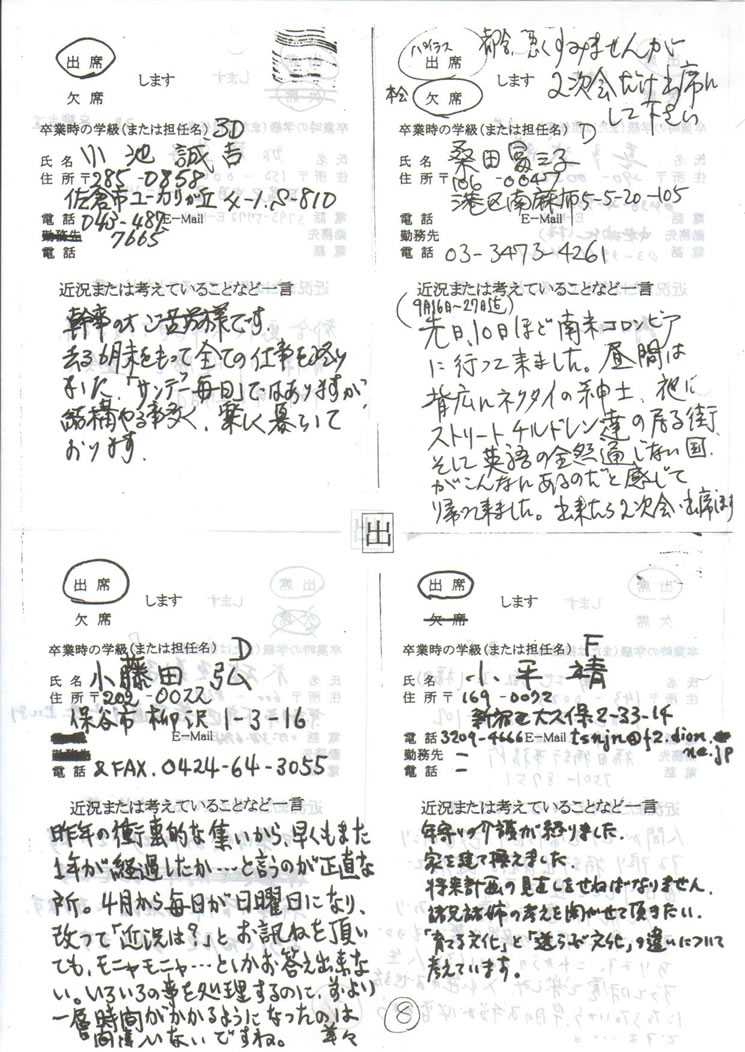 出席
します
欠席
卒業時の学級(または担任名) 3D
氏名 小池誠吉
住所〒285-0858
佐倉市ユーカリが丘 4-1,S-810
電話 043-487- E-Mail
7665
勤務先
電話
近況または考えていることなど一言
幹事の
去る6月末をもって全ての仕事を終り
ました、「サンデー毎日」ではありますが、
結構やる事多く、楽しく暮らして
おります.
出席
都合悪くすみませんが
2次会だけ出席に
して下さい
します
本会
欠席
卒業時の学級(または担任名) D
氏名 桑田冨三子
住所〒106-0047
港区南麻布5-5-20-105
電話 E-Mail
勤務先
電話 03-3473-4261
近況または考えていることなど一言
(9月16日〜27日迄)
先日、10日ほど南米コロンビア
に行って来ました。昼間は
背広にネクタイの紳士、夜に
ストリートチルドレン達の居る街、
そして英語の全然通じない国、
がこんなにあるのだと感じて
帰って来ました。出来たら2次会、出席します
出
出席
します
欠席
卒業時の学級(または担任名) D
氏名 小藤田弘
住所〒202-0022
保谷市柳沢1-3-16
E-Mail
電話 & FAX. 0424-64-3055
近況または考えていることなど一言
昨年の衝撃的な集いから、早くもまた
1年が経過したか…と言うのが正直な
所。4月から毎日が日曜日になり、
改って「近況は?」とお訊ねを頂い
ても、モニャモニャ…としかお答え出来な
い。いろいろの事を処理するのに、前より
一層時間がかかるようになったのは
間違いないですね。 草々
出席
します
欠席
卒業時の学級(または担任名) F
氏名 小平靖
住所〒169-0072
新宿区大久保2-33-14
電話 3209-4666 E-Mail tsnjn@f2.dion.
ne.jp
勤務先 —
電話 —
近況または考えていることなど一言
年寄りの介護が終りました.
家を建て替えました
将来計画の見直しをせねばなりません.
諸兄諸姉の考えを聞かせて頂きたい.
「育てる文化」と「選ぶ文化」の違いについて
考えています。
8